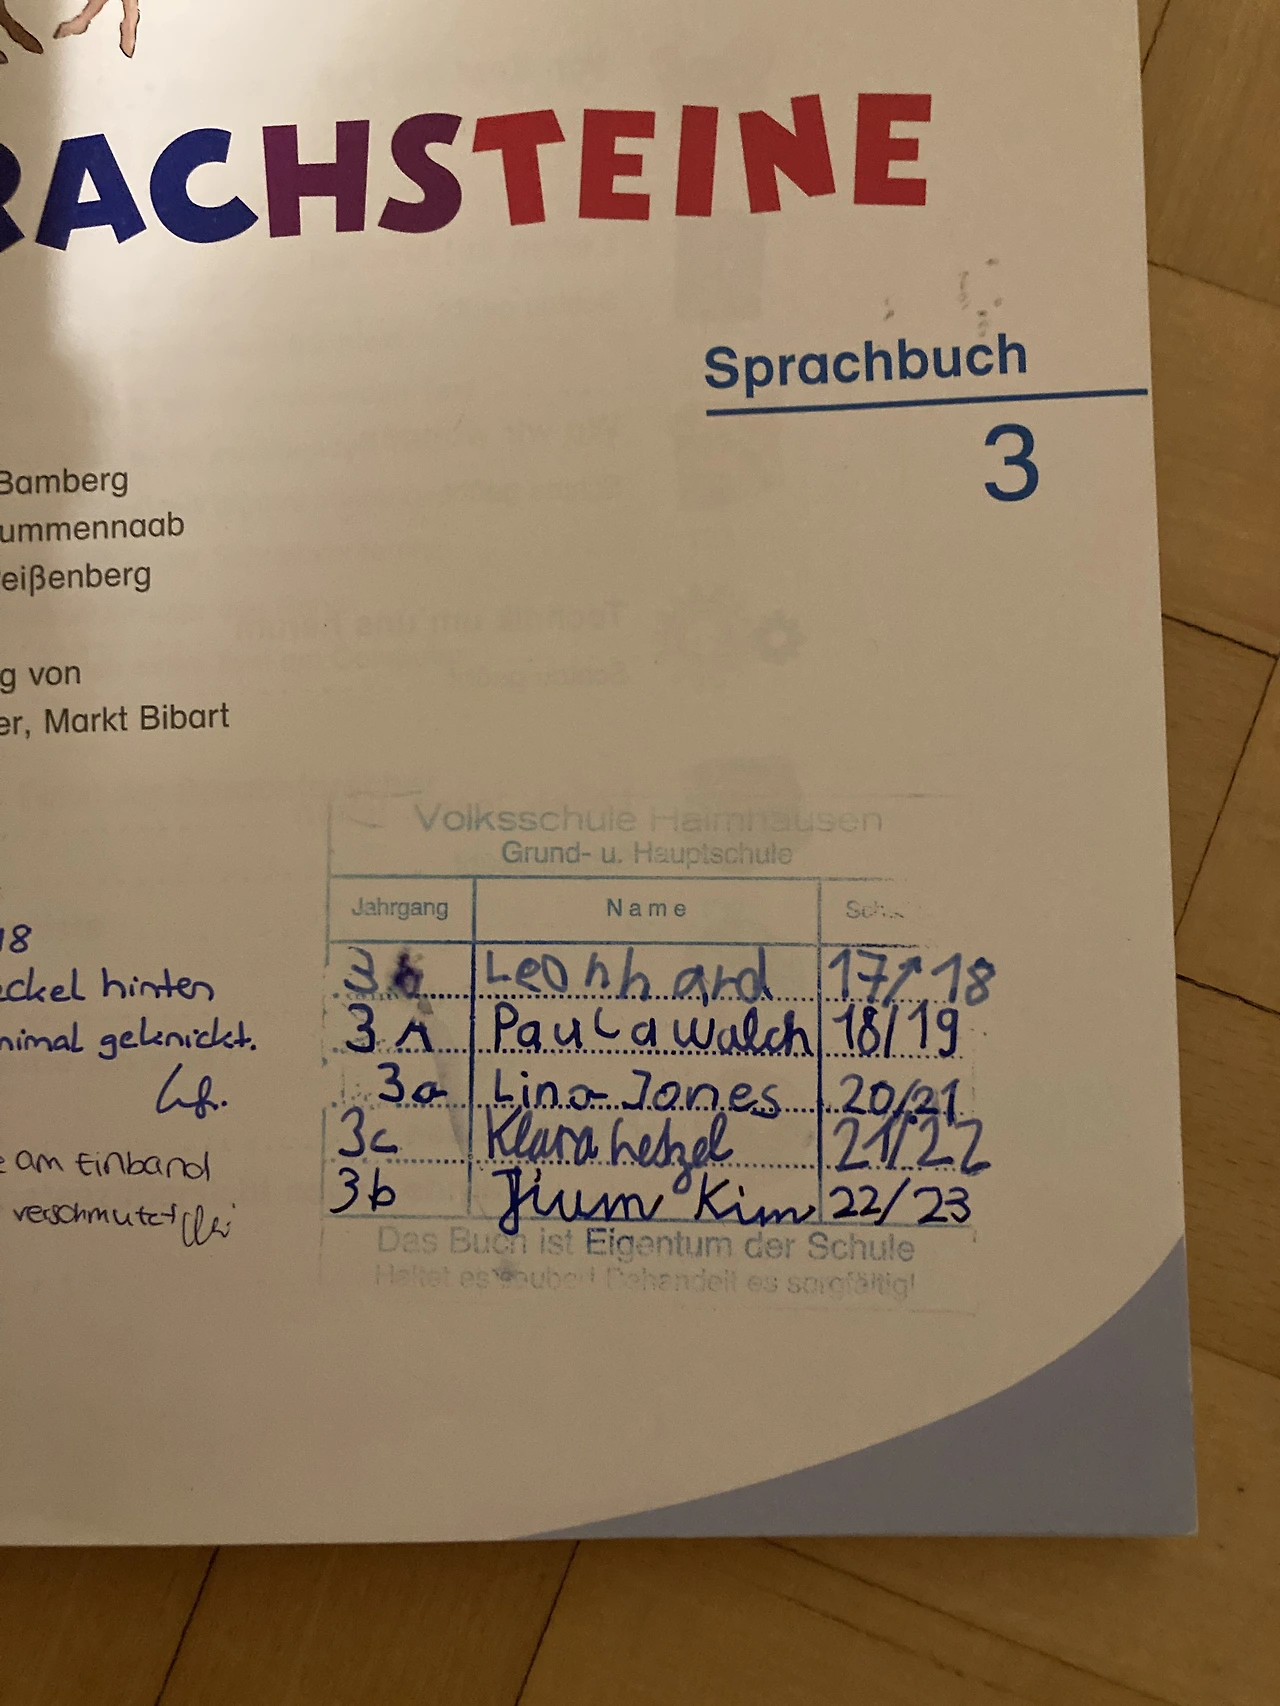 RACHSTEINE
Sprachbuch
3
Bamberg
ummennaab
eißenberg
g von
er, Markt Bibart
Volksschule Haimhausen
Grund- u. Hauptschule
Jahrgang Name Sch
3b Leonhard 17/18
3A Paula Walch 18/19
3a Lina Jones 20/21
3c Klara Hetzel 21/22
3b Jium Kim 22/23
Das Buch ist Eigentum der Schule
Haltet es sauber! Behandelt es sorgfältig!
18
eckel hinten
nimal geknickt.
e am Einband
verschmutzt